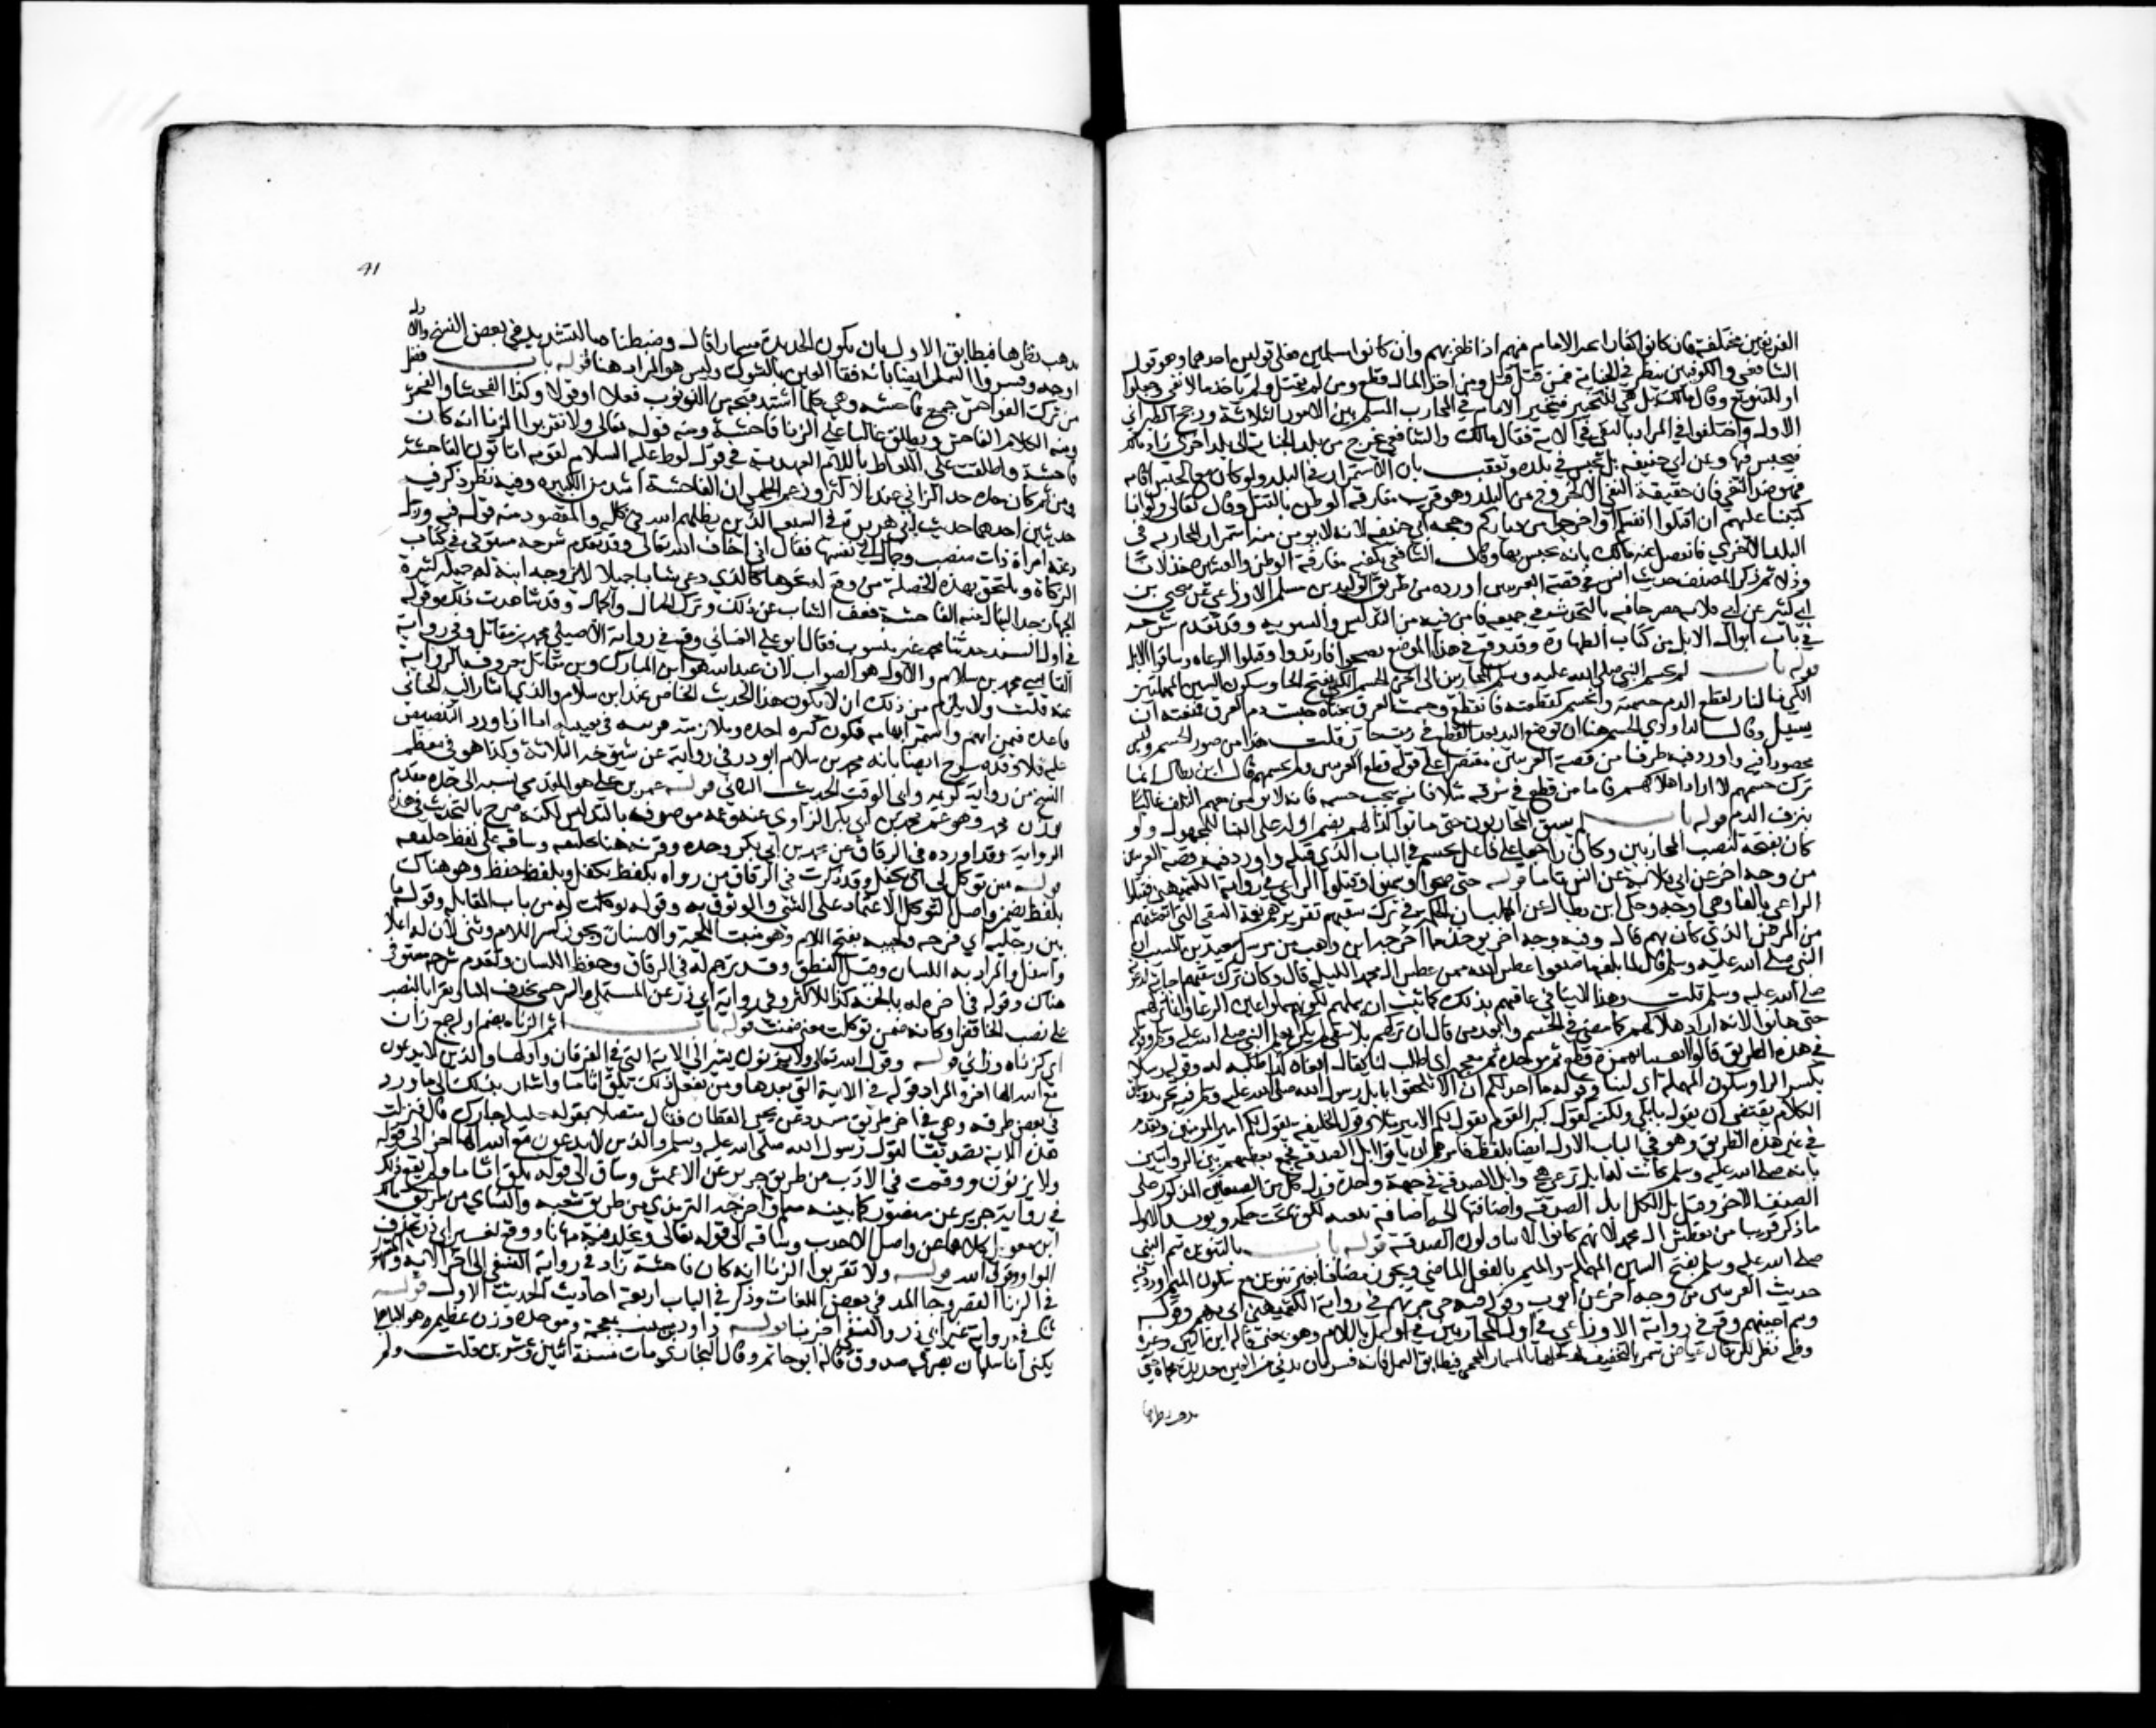 الفريقين مختلفة فان كانوا كفارا خير الامام فيهم اذا ظفر بهم وان كانوا مسلمين فعلى قولين احدهما وهو قول
الشافعي والكوفيين ينظر في الجناية فمن قتل قتل ومن اخذ المال قطع ومن لم يقتل ولم ياخذ مالا نفي وجعلوا
او للتنويع وقال مالك بل هي للتخيير فيتخير الامام في المحارب المسلم بين الامور الثلاثة ورجح الطبراني
الاول واختلفوا في المراد بالنفي في الاية فقال مالك والشافعي يخرج من بلد الجناية الى بلد اخري زاد مالك
فيحبس فيها وعن ابي حنيفة بل يحبس في بلده وتعقب بان الاستمرار في البلد ولو كان مع الحبس اقامة
فهو ضد النفي فان حقيقة النفي الاخراج من البلد وقد قرنت مفارقة الوطن بالقتل وقال تعالى ولو انا
كتبنا عليهم ان اقتلوا انفسكم او اخرجوا من دياركم وحجة ابي حنيفة لانه لا يومن منه استمرار المحاربة في
البلد الاخري فانفصل عنه مالك بانه يحبس بها وقال الشافعي يكفيه مفارقة الوطن والعشيرة خذلانا
وذلا ثم ذكر المصنف حديث انس في قصة العرنيين اورده من طريق الوليد بن مسلم الاوزاعي عن يحيى بن
ابي كثير عن ابي قلابة مصرحا فيه بالتحديث في جميعه فامن فيه من التدليس والتسوية وقد تقدم شرحه
في باب ابوال الابل من كتاب الطهارة وقد وقع في هذا الموضع فصحوا فارتدوا وقتلوا الرعاة وساقوا الابل
قوله باب لم يحسم النبي صلى الله عليه وسلم المحاربين الى اخره الحسم الكي بفتح الحا وسكون السين المهملتين
الكي بالنار لقطع الدم حسمته فانحسم كقطعته فانقطع وحسمت العرق معناه حبست دم العرق فمنعته ان
يسيل وقال الداودي الحسم هنا ان توضع اليد بعد القطع في زيت حار قلت هذا من صور الحسم وليس
محصورا فيه واورد فيه طرفا من قصة العرنيين مقتصرا على قوله قطع العرنيين ولم يحسمهم قال ابن بطال انما
ترك حسمهم لانه اراد اهلاكهم فاما من قطع في سرقة مثلا فانه يجب حسمه فانه لا يومن معه التلف غالبا
بنزف الدم قوله باب لم يسق المحاربون حتى ماتوا كذا لهم بضم اوله على البنا للمجهول ولو
كان بفتحه لنصب المحاربين وكان راجعا على فاعل يحسم في الباب الذي قبله واورد فيه قصة العرنيين
من وجه اخر عن ابي قلابة عن انس تاما قوله حتى صحوا وسمنوا وقتلوا الراعي في رواية الكشميهني فقتلوا
الراعي بالفا وهي اوجه وحكى ابن بطال عن المهلب ان الحكمة في ترك سقيهم كفرهم نعمة السقي التي انعشتهم
من المرض الذي كان بهم قال وفيه وجه اخر يوخذ مما اخرجه ابن وهب من مرسل سعيد بن المسيب ان
النبي صلى الله عليه وسلم قال لما بلغه ما صنعوا عطش الله من عطش ال محمد الليلة قال فكان ترك سقيهم اجابة لدعوته
صلى الله عليه وسلم قلت وهذا لا ينافي عاقبهم بذلك كما ثبت انه سملهم لكونهم سملوا اعين الرعا وانما تركهم
حتى ماتوا لانه اراد هلاكهم كما مضى في الحسم وابعد من قال ان تركهم بلا سقي لم يكن بعلم النبي صلى الله عليه وسلم وقوله
في هذه الطريق قالوا ابغنا بهمزة قطع ثم موحدة ثم معجمة اي اطلب لنا يقال ابغاه كذا طلبه له وقوله رسلا
بكسر الرا وسكون المهملة اي لبنا وقوله ما اجد لكم الا ان تلحقوا بابل رسول الله صلى الله عليه وسلم فيه تجريد وسياق
الكلام يقتضي ان يقول بابلي ولكنه كقول كبير القوم يقول لكم الامير مثلا وقول الخليفة يقول لكم امير المومنين وتقدم
في غير هذه الطريق وهو في الباب الاول ايضا بلفظ فامرهم ان ياتوا ابل الصدقة فجمع بعضهم بين الروايتين
بانه صلى الله عليه وسلم كانت له ابل ترعى وابل الصدقة في جهة واحدة فدل كل من الصنفين المذكور على
الصنف الاخر وقيل بل الكل ابل الصدقة واضافتها اليه اضافة تبعية لكونه تحت حكمه ويويد الاول
ما ذكر قريبا من تعطيش ال محمد لانهم كانوا لا يتناولون الصدقة قوله باب بالتنوين سمر النبي
صلى الله عليه وسلم بفتح السين المهملة والميم بالفعل الماضي ويجوز مضافا بغير تنوين مع سكون الميم اورد فيه
حديث العرنيين من وجه اخر عن ايوب وقوله فيه حتى جي بهم في رواية الكشميهني اتي بهم وقوله
وسمر اعينهم وقع في رواية الاوزاعي في اول المحاربين وسمل باللام وهو بمعنى قاله ابن التين وغيره
وفيه نظر لكن قال عياض سمر بالتخفيف كحلها بالمسمار المحمي فيطابق السمل فانه فسر بان يدنى من العين حديدة محماة حتى
يذهب نظرها
41
يذهب نظرها فيطابق الاول بان يكون الحديدة مسمارا قال وضبطناه بالتشديد في بعض النسخ والاول
اوجه وفسروا السمل ايضا بانه فقا العين بالشوك وليس هو المراد هنا قوله باب فضل
من ترك الفواحش جمع فاحشة وهي كلما اشتد قبحه من الذنوب فعلا او قولا وكذا الفحشا والفحش
ومنه الكلام الفاحش ويطلق غالبا على الزنا فاحشة ومنه قوله تعالى ولا تقربوا الزنا انه كان
فاحشة واطلقت على اللواط باللام العهدية في قول لوط عليه السلام لقومه اتاتون الفاحشة
ومن ثم كان حده حد الزاني عند الاكثر وزعم الحليمي ان الفاحشة اشد من الكبيرة وفيه نظر وذكر فيه
حديثين احدهما حديث ابي هريرة في السبعة الذين يظلهم الله في ظله والمقصود منه قوله فيه ورجل
دعته امراة ذات منصب وجمال الى نفسها فقال اني اخاف الله تعالى وقد تقدم شرحه مستوفى في كتاب
الزكاة ويلتحق بهذه الخصلة من وقع له نحوها كالذي دعي شابا جميلا لان يزوجه ابنة له جميلة كثيرة
الجهاز جدا لينال منه الفاحشة فعف الشاب عن ذلك وترك المال والجمال وقد شاهدت ذلك وقوله
في اول السند حدثنا محمد غير منسوب فقال ابو علي الغساني وقع في رواية الاصيلي محمد بن مقاتل وفي رواية
القابسي محمد بن سلام والاول هو الصواب لان عبد الله هو ابن المبارك وبن مقاتل معروف بالرواية
عنه قلت ولا يلزم من ذلك ان لا يكون هذا الحديث الخاص عند ابن سلام والذي اشار اليه الغساني
قاعدة فيمن ابهم واستمر ابهامه فيكون كثرة اخذه وملازمته قرينة في تعيينه اما اذا ورد التنصيص
عليه فلا وقد صرح ايضا بانه محمد بن سلام ابو ذر في روايته عن شيوخه الثلاثة وكذا هو في معظم
النسخ من رواية كريمة وابي الوقت الحديث الثاني قوله عمر بن علي هو المقدمي نسبة الى جده مقدم
بوزن محمد وهو عم محمد بن ابي بكر الراوي عنه وعمه موصوف بالتدليس لكنه صرح بالتحديث في هذه
الرواية وقد اورده في الرقاق عن محمد بن ابي بكر وحده وقرنه هنا بخليفة وساقه على لفظ خليفة
قوله من توكل لي اي تكفل وقد ذكرت في الرقاق من رواه بلفظ تكفل وبلفظ حفظ وهو هناك
بلفظ يضمن واصل التوكل الاعتماد على الشي والوثوق به وقوله توكلت له من باب المقابلة وقوله ما
بين رجليه اي فرجه ولحييه بفتح اللام وهو منبت اللحية والاسنان ويجوز كسر اللام وثنى لان له اعلا
واسفل والمراد به اللسان وقيل النطق وقد ترجم له في الرقاق وحفظ اللسان وتقدم شرحه مستوفى
هناك وقوله في اخره له بالجنة كذا للاكثر وفي رواية ابي ذر عن المستملي والسرخسي بحذف البا ويقرا بالنصب
على نصب الخافض وكانه ضمن توكلت معنى ضمنت قوله باب اثم الزناة بضم اوله جمع زان
اي كرماة ورامي قوله وقول الله تعالى ولا يزنون يشير الى الاية التي في الفرقان واولها والذين لا يدعون
مع الله الها اخر والمراد قوله في الاية التي بعدها ومن يفعل ذلك يلق اثاما واشار بذلك الى ما ورد
في بعض طرقه وهي في اخر طريق مسدد عن يحيى القطان فقال متصلا بقوله حليلة جارك قال فنزلت
هذه الاية تصديقا لقول رسول الله صلى الله عليه وسلم والذين لا يدعون مع الله الها اخر الى قوله
ولا يزنون ووقعت في الادب من طريق جرير عن الاعمش وساق الى قوله يلق اثاما ولم يقع ذلك
في رواية جرير عن منصور كما بينه مسلم واخرجه الترمذي من طريق شعبة والنسائي من طريق مالك
ابن مغول كلاهما عن واصل الاحدب وساقه الى قوله تعالى ويخلد فيه مهانا ووقع لغير ابي ذر بحذف
الواو وقول الله قوله ولا تقربوا الزنا انه كان فاحشة زاد في رواية النسفي الى اخر الاية والمشهور
في الزنا القصر وجا المد في بعض اللغات وذكر في الباب اربعة احاديث الحديث الاول قوله
حدثنا في رواية غير ابي ذر والنسفي اخبرنا قوله داود بن شبيب بمعجمة وموحدة وزن عظيم وهو الباهلي
يكنى ابا سليمان بصري صدوق قاله ابو حاتم وقال البخاري مات سنة اثنين وعشرين قلت ولم